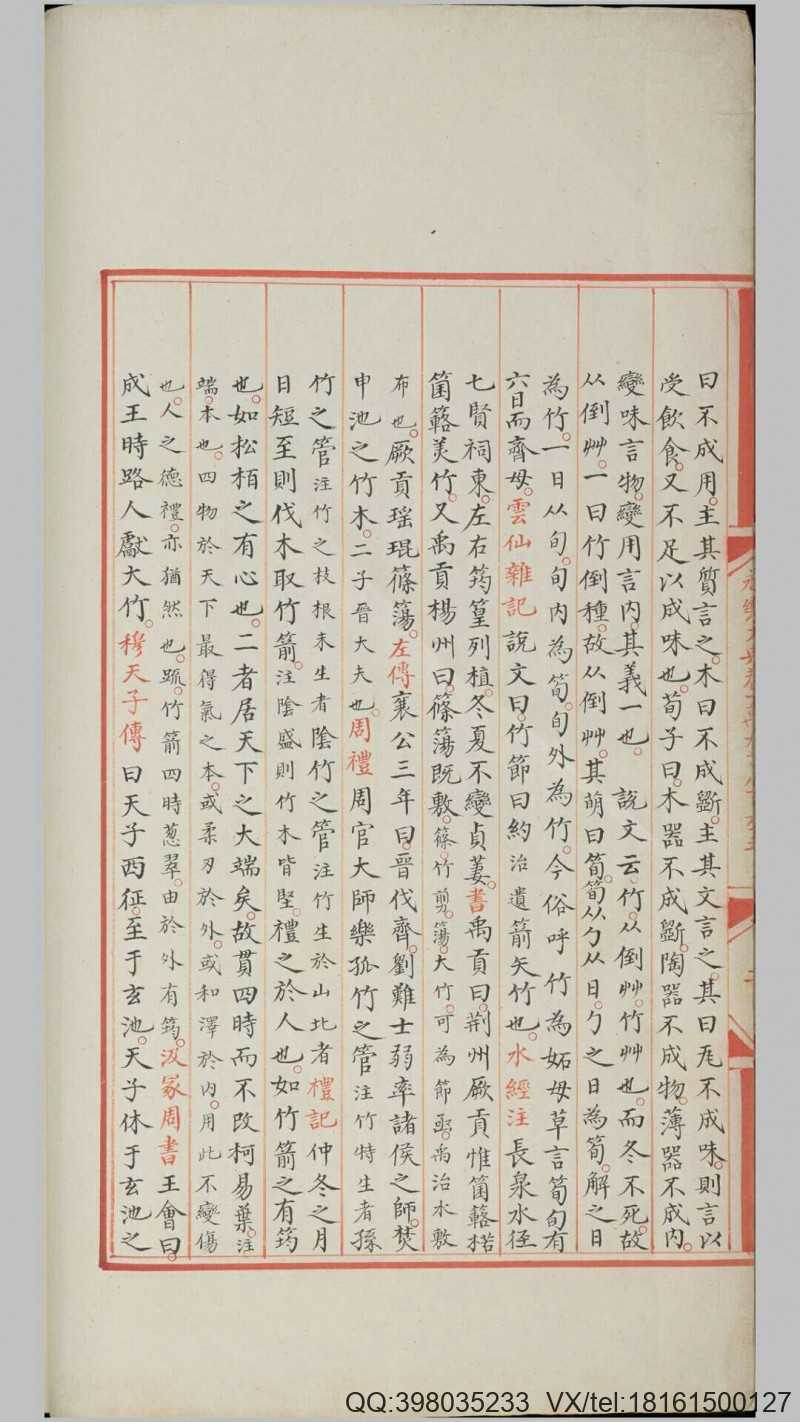 曰不成用。主其質言之。木曰不成斵。主其文言之。其曰瓦不成味。則言以
受飲食。又不足以成味也。荀子曰。木器不成斵。陶器不成物。薄器不成内。
變味言物。變用言内。其義一也。 說文云。竹。从倒艸。竹艸也。而冬不死。故
从倒艸。一曰竹倒種。故从倒艸。其萌曰筍。筍从勹从日。勹之日為筍。解之日
為竹。一日从旬。旬内為筍。旬外為竹。今俗呼竹為妬母草言筍旬有
六日而齊母。雲仙雜記說文曰。竹節曰約治遺箭矢竹也。水經注長泉水徑
七賢祠東。左右筠篁列植。冬夏不變貞萋。書禹貢曰。荆州厥貢惟箘簵楛
箘簵羙竹。又禹貢楊州曰。篠簜既敷。篠。竹剪。簜。大竹。可為節函。禹治水敷
布也。厥貢瑶琨篠簜。左傳襄公三年曰。晉伐齊。劉難士弱率諸侯之師。焚
申池之竹木。二子晉大夫也。周禮周官大師樂孤竹之管注竹特生者孫
竹之管注竹之枝根末生者陰竹之管注竹生於山北者禮記仲冬之月
日短至則伐木取竹箭。注陰盛則竹木皆堅。禮之於人也。如竹箭之有筠
也。如松栢之有心也。二者居天下之大端矣。故貫四時而不改柯易葉。注
端。本也。四物於天下最得氣之本。或柔刃於外。或和澤於内。用此不變傷
也。人之德禮。亦猶然也。䟽。竹箭四時葱翠。由於外有筠。汲冢周書王會曰。
成王時路人獻大竹。穆天子傳曰天子西征。至于玄池。天子休于玄池之
QQ:398035233 VX/tel:18161500127